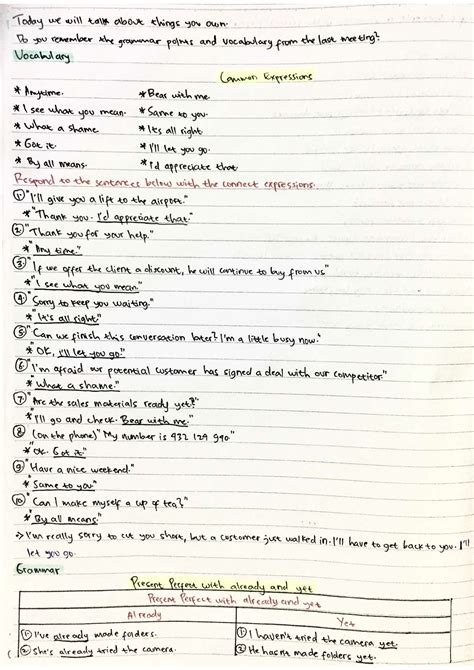 Today we will talk about things you own.
Do you remember the grammar points and vocabulary from the last meeting?
Vocabulary
Common Expressions
* Anytime. * Bear with me.
* I see what you mean. * Same to you.
* What a shame. * It's all right.
* Got it. * I'll let you go.
* By all means. * I'd appreciate that
Respond to the sentences below with the connect expressions.
① "I'll give you a lift to the airport."
* "Thank you. I'd appreciate that."
② "Thank you for your help."
* "Any time."
③ "If we offer the client a discount, he will continue to buy from us"
* "I see what you mean."
④ "Sorry to keep you waiting."
* "It's all right"
⑤ "Can we finish this conversation later? I'm a little busy now."
* "OK, I'll let you go."
⑥ "I'm afraid our potential customer has signed a deal with our competitor"
* "What a shame."
⑦ "Are the sales materials ready yet?"
* "I'll go and check. Bear with me."
⑧ (on the phone) "My number is 932 129 990."
* "Ok. Got it"
⑨ "Have a nice weekend."
* "Same to you."
⑩ "Can I make myself a cup of tea?"
* "By all means."
-> I'm really sorry to cut you short, but a customer just walked in. I'll have to get back to you. I'll
let you go.
Grammar
Present Perfect with already and yet
Present Perfect with already and yet
Already Yet
① I've already made folders. ① I haven't tried the camera yet.
② She's already tried the camera. ② He hasn't made folders yet.